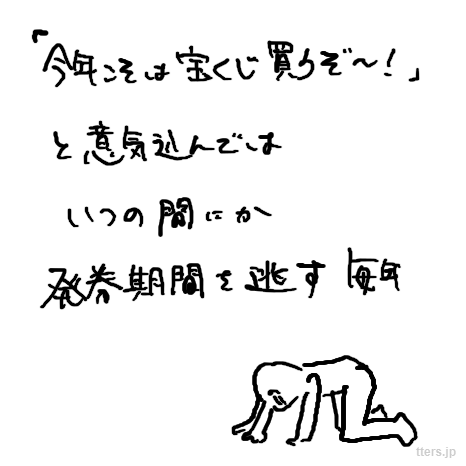 「今年こそは宝くじ買うぞ〜!」
と意気込んでは
いつの間にか
発券期間を逃す毎年
tters.jp